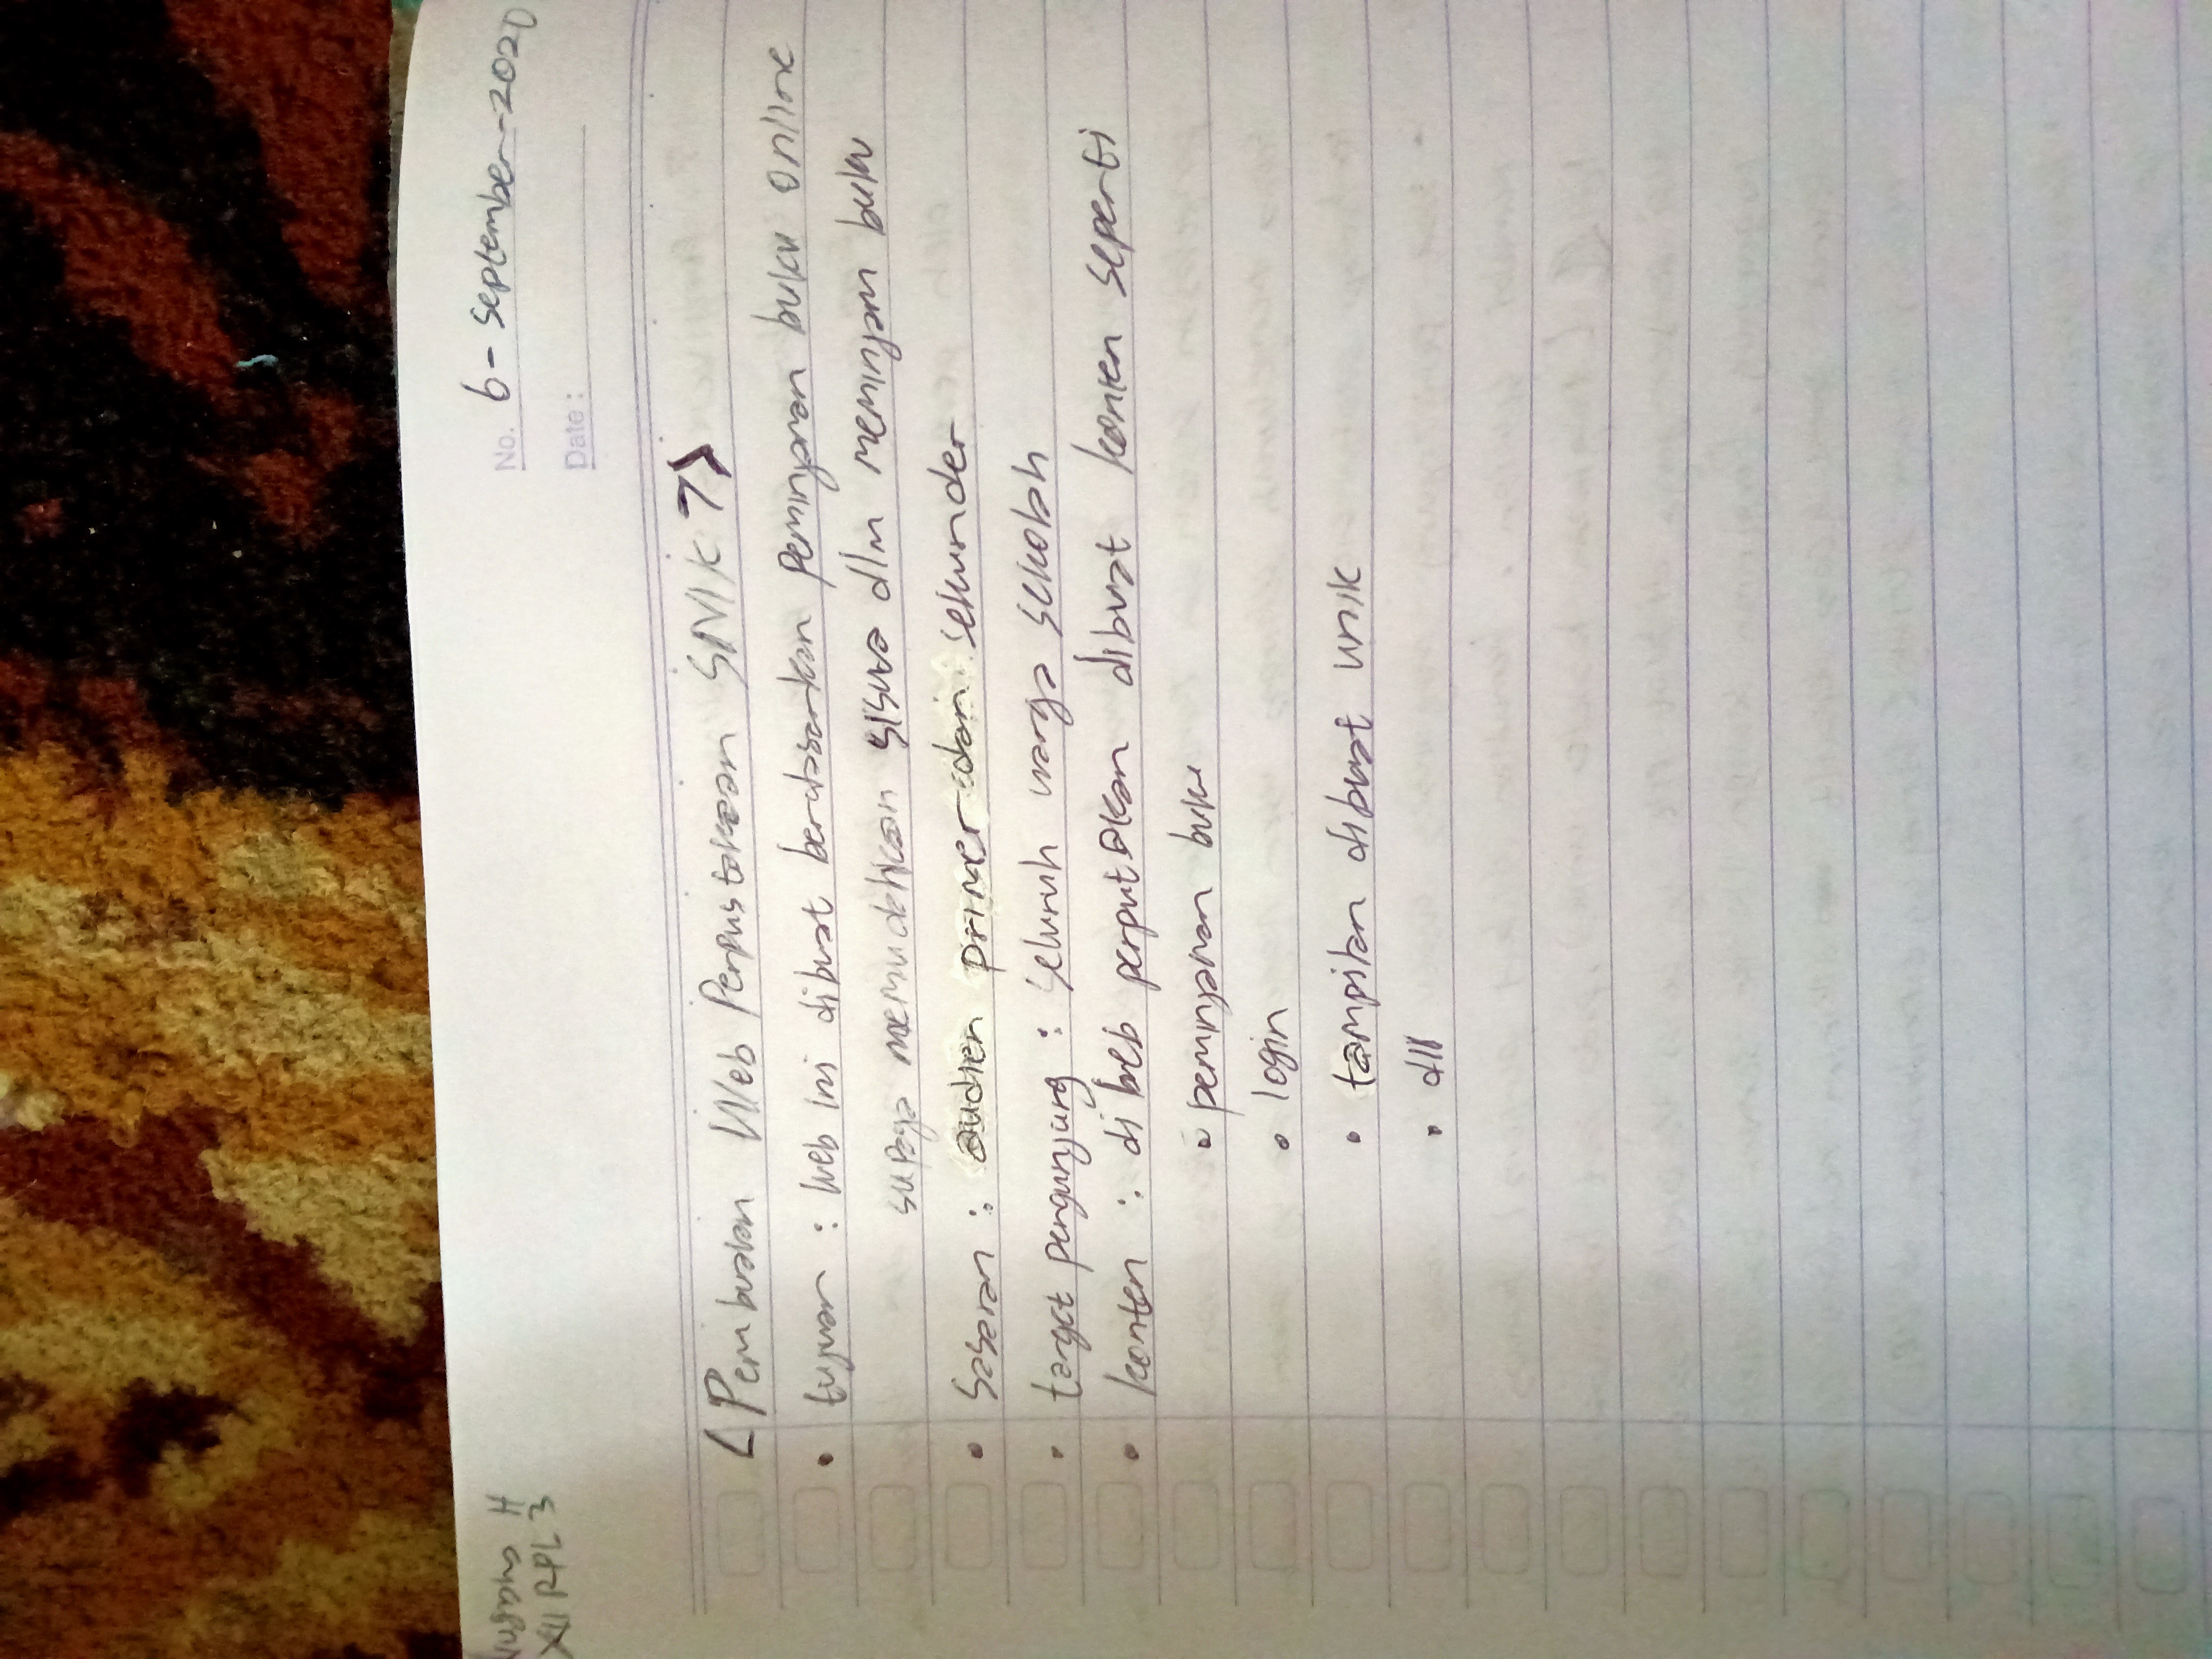 H
XII RPL 3
No. 6-September-2020
Date:
<Pembuatan Web Perpustakaan SMK 7>
• tujuan : Web ini dibuat berdasarkan Peminjman buku online
supaya memudahkan siswa dlm meminjam buku
• Sasaran : audien primer dan sekunder
• target pengunjung : seluruh warga sekolah
• konten : di web perputakan dibuat konten seperti
• peminjaman buku
• login
• tampilan dibuat unik
• dll